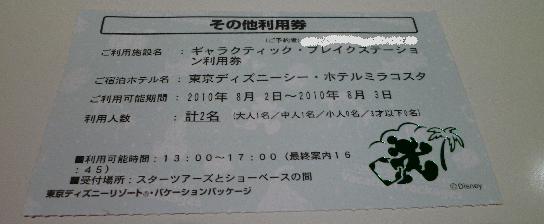 その他利用券
(ご予約者:
ご利用施設名 : ギャラクティック・ブレイクステーショ
ン利用券
ご宿泊ホテル名 : 東京ディズニーシー・ホテルミラコスタ
ご利用可能期間 : 2010年 8月 2日~2010年 8月 3日
利用人数 : 計2名 (大人1名/中人1名/小人0名/3才以下0名)
■利用可能時間:13:00~17:00(最終案内16
:45)
■受付場所:スターツアーズとショーベースの間
東京ディズニーリゾート®・バケーションパッケージ
©Disney